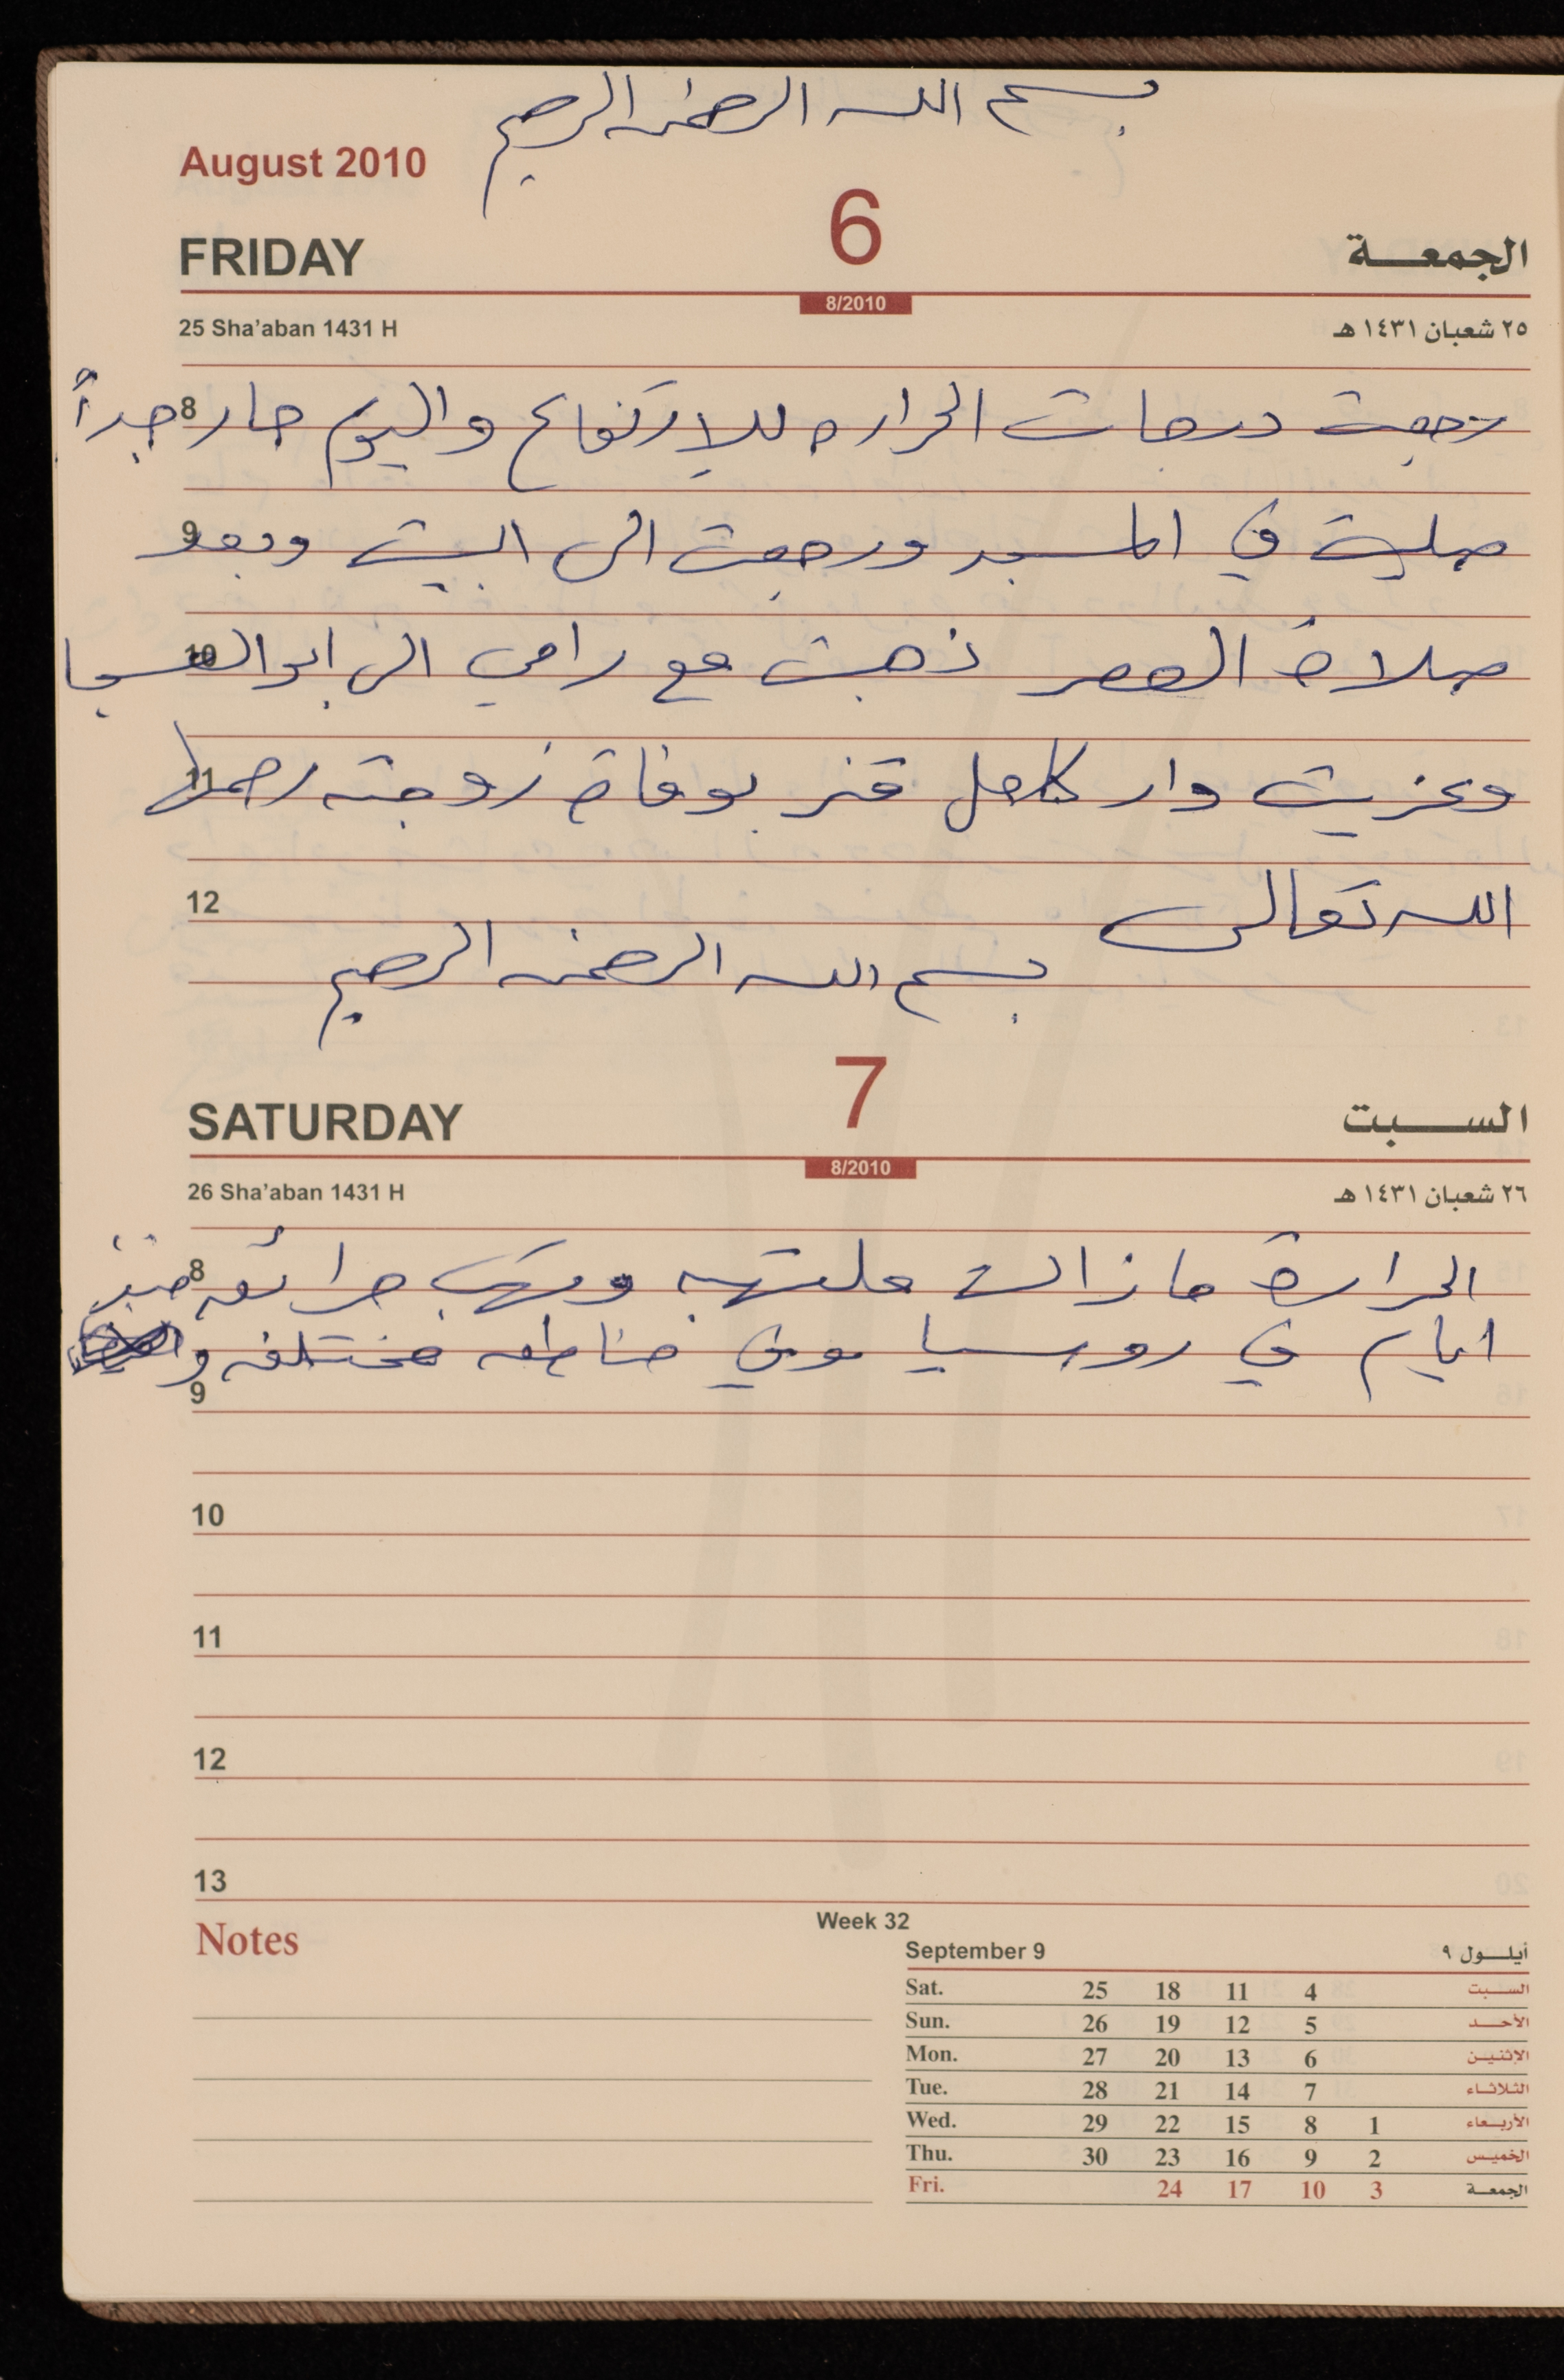 بسم الله الرحمن الرحيم
August 2010
FRIDAY 6 الجمعة
8/2010
25 Sha'aban 1431 H ٢٥ شعبان ١٤٣١ هـ
8 رجعت درجات الحراره للارتفاع واليوم حار جداً
9 صليت في المسجد ورجعت الى البيت وبعد
10 صلاة العصر ذهبت مع رامي الى ابو
11 وعزيت دار كامل قنر بوفاة زوجته رحمها
12 الله تعالى
بسم الله الرحمن الرحيم
SATURDAY 7 السبت
8/2010
26 Sha'aban 1431 H ٢٦ شعبان ١٤٣١ هـ
8 الحرارة مازالت ملتهبه وتهب حرائق منذ
ايام في روسيا وفي مناطق مختلفه و
9
10
11
12
13
Notes
Week 32
September 9 أيلول ٩
Sat. 25 18 11 4 السبت
Sun. 26 19 12 5 الأحد
Mon. 27 20 13 6 الإثنين
Tue. 28 21 14 7 الثلاثاء
Wed. 29 22 15 8 1 الأربعاء
Thu. 30 23 16 9 2 الخميس
Fri. 24 17 10 3 الجمعة